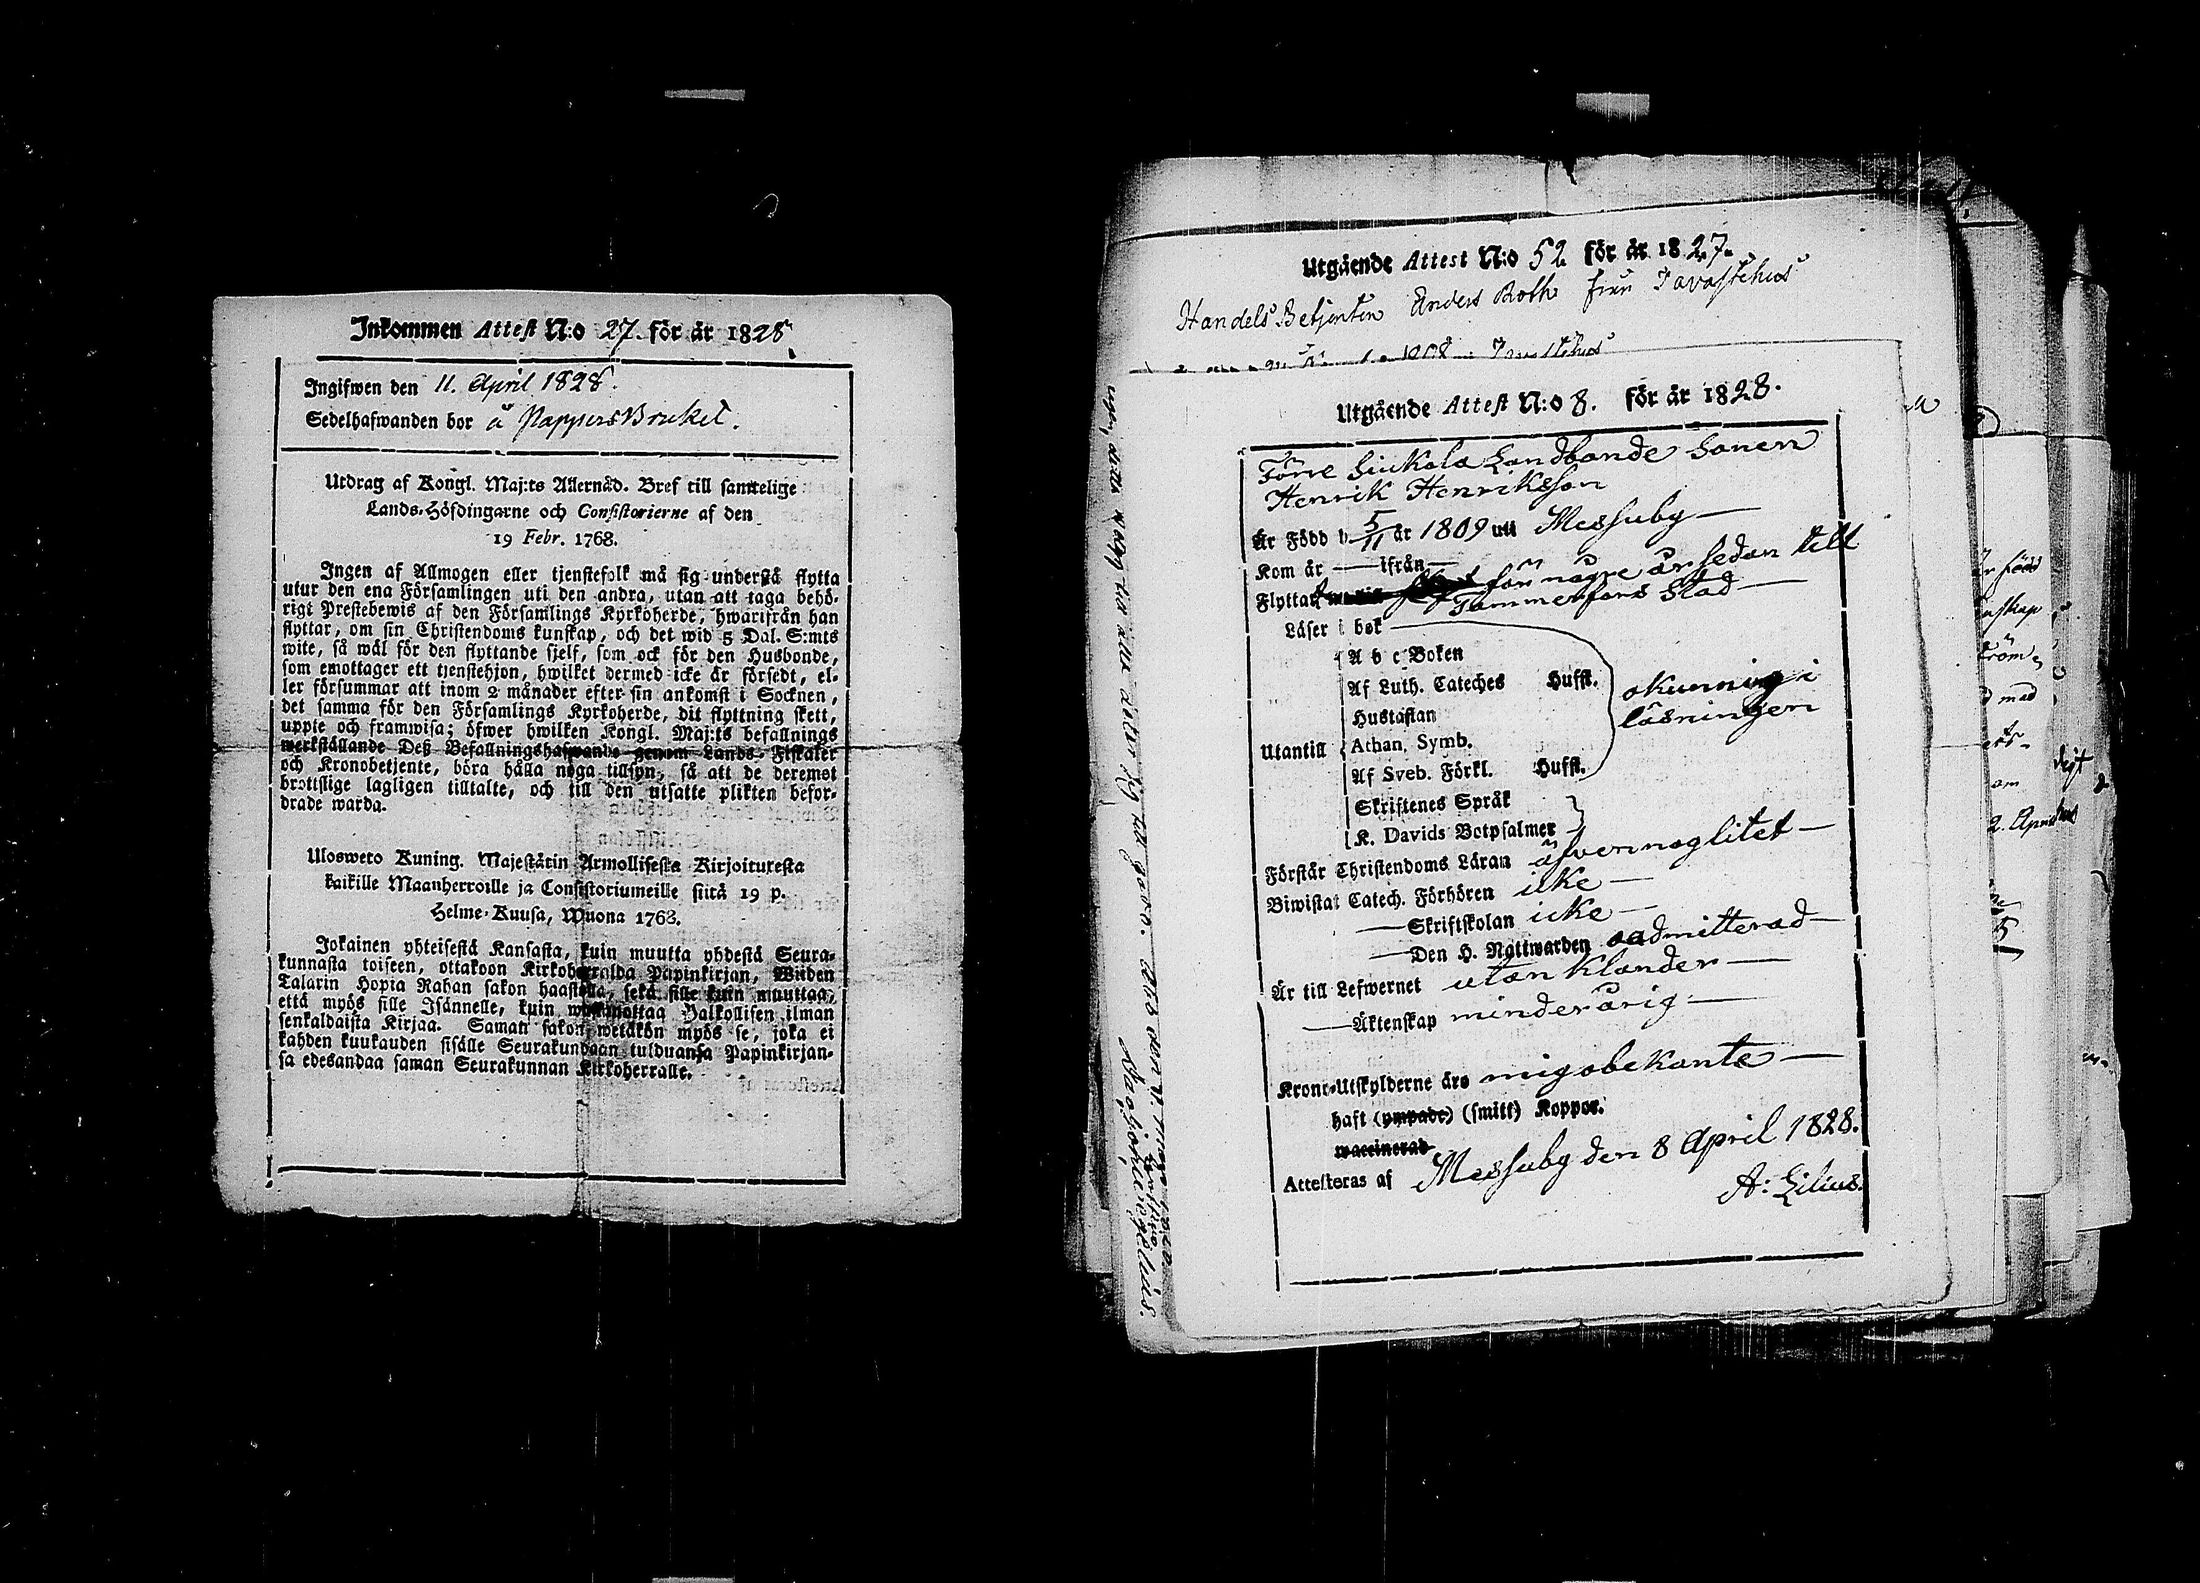 Inkommen Attest N:o 27. för år 1828
Ingifwen den 11. April 1828.
Sedelhafwanden bor å PappersBruket.
Utdrag af Kongl. Maj:ts Allernåd. Bref till samtelige
Lands-Höfdingarne och Consistorierne af den
19 Febr. 1768.
Ingen af Allmogen eller tjenstefolk må sig understå flytta
utur den ena Församlingen uti den andra, utan att taga behö-
rigt Prestebewis af den Församlings Kyrkoherde, hwarifrån han
flyttar, om sin Christendoms kunskap, och det wid 5 Dal. S:mts
wite, så wäl för den flyttande sjelf, som ock för den Husbonde,
som emottager ett tjenstehjon, hwilket dermed icke är försedt, el-
ler försummar att inom 2 månader efter sin ankomst i Socknen,
det samma för den Församlings Kyrkoherde, dit flyttning skett,
uppte och framwisa; öfwer hwilken Kongl. Maj:ts befallnings
werkställande Deß Befallningshafwande genom Lands-Fiskaler
och Kronobetjente, böra hålla noga tillsyn, så att de deremot
brottslige lagligen tilltalte, och till den utsatte plikten befor-
drade warda.
Ulosweto Kuning. Majestätin Armollisesta Kirjoituxesta
kaikille Maanherroille ja Consistoriumeille siitä 19 p.
Helme-Kuusa, Wuona 1768.
Jokainen yhteisestä Kansasta, kuin muutta yhdestä Seura-
kunnasta toiseen, ottakoon Kirkoherralda Papinkirjan, Wiiden
Talarin Hopia Rahan sakon haastolla, sekä sille kuin muuttaa,
että myös sille Isännelle, kuin wastanottaa Palkollisen ilman
senkaldaista Kirjaa. Saman sakon wetäkön myös se, joka ei
kahden kuukauden sisälle Seurakundaan tulduansa Papinkirjan-
sa edesandaa saman Seurakunnan Kirkoherralle.
Utgående Attest N:o 52 för år 1827.
Handels Betjenten Anders Roth från Tavastehus
Utgående Attest N:o 8. för år 1828.
Förre Siukola Landbonde Sonen
Henrik Henriksson
Är Född d. 5/11 år 1809 uti Messuby
Kom år — ifrån —
Flyttat för någre år sedan till
Tammerfors Stad
Läser i bok
A b c Boken
Af Luth. Cateches Hufst.
okunnig i
Hustaflan
läsningen
Utantill
Athan. Symb.
Af Sveb. Förkl. Hufst.
Skriftenes Språk
K. Davids Botpsalmer
Förstår Christendoms Läran äfven nog litet
Biwistat Catech. Förhören icke
— Skriftskolan icke
— Den H. Nattwarden oadmitterad
Är till Lefwernet utan Klander
— Äktenskap minderårig
Krono-Utskylderne äro mig obekante
haft (ympade) (smitt) Koppor.
waccinerad
Attesteras af Messuby den 8 April 1828.
A: Lilius.